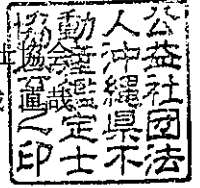 公益社団法
人沖縄県不
動産鑑定士
協會之印